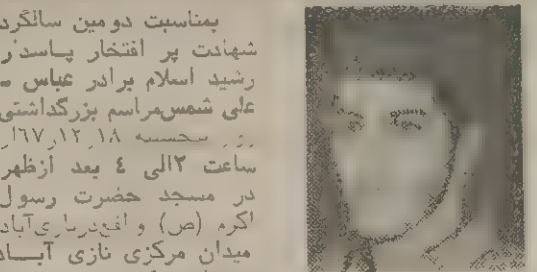 بمناسبت دومین سالگرد
شهادت پر افتخار پاسدار
رشید اسلام برادر عباس ـ
علی شمس مراسم بزرگداشتی
روز ۶۷٫۱۲٫۱۸
ساعت ۲الی ٤ بعد ازظهر
در مسجد حضرت رسول
اکرم (ص) و
میدان مرکزی نازی آبـاد